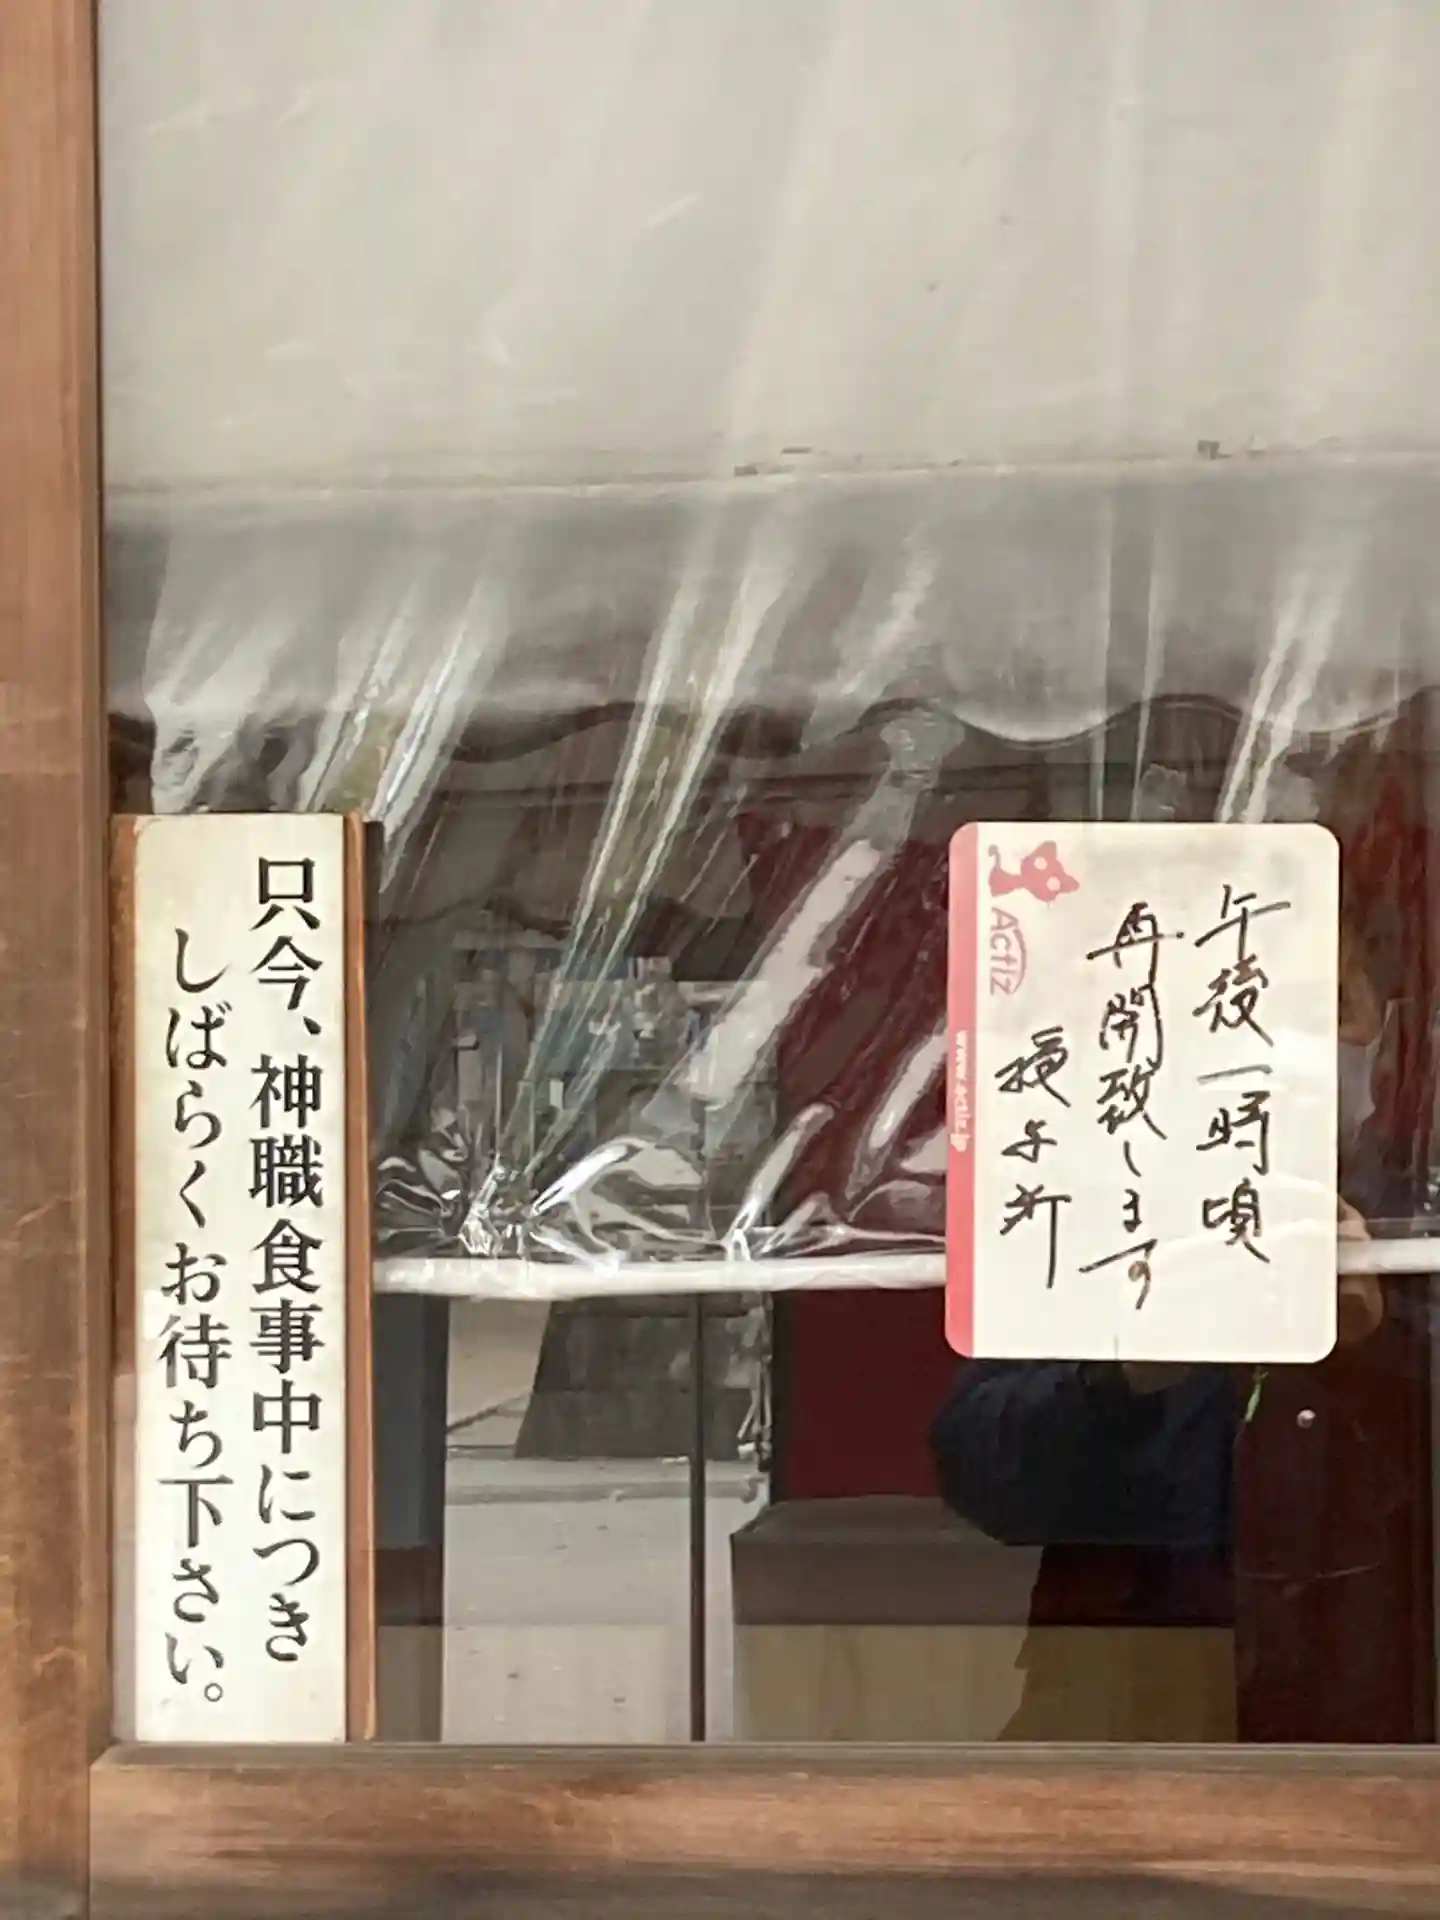 只今、神職食事中につき
しばらくお待ち下さい。
午後一時頃
再開致します
授与所
Actiz
www.actiz.jp